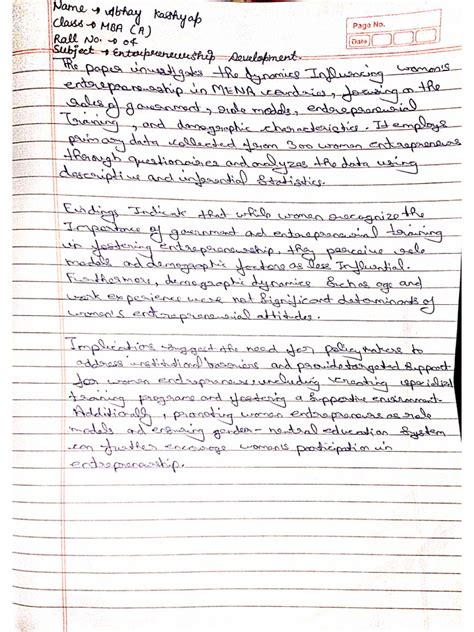 Name → Abhay Kashyap
Class → MBA (A)
Roll No. → 04
Subject → Entrepreneurship Development.
Page No.
Date
The paper investigates the dynamics Influencing women's
entrepreneurship in MENA countries, focusing on the
roles of government, role models, entrepreneurial
Training, and demographic characteristics. It employs
primary data collected from 300 women entrepreneurs
through questionnaires and analyzes the data using
descriptive and inferential Statistics.
Findings Indicate that while women recognize the
Importance of government and entrepreneurial training
in fostering entrepreneurship, they perceive role
models and demographic factors as less Influential.
Furthermore, demographic dynamics Such as age and
work experience were not Significant determinants of
women's entrepreneurial attitudes.
Implications suggest the need for policymakers to
address institutional barriers and provide targeted Support
for women entrepreneurs, including creating specialized
training programs and fostering a Supportive environment.
Additionally, promoting women entrepreneurs as role
models and ensuring gender-neutral education System
can further encourage women's participation in
entrepreneurship.